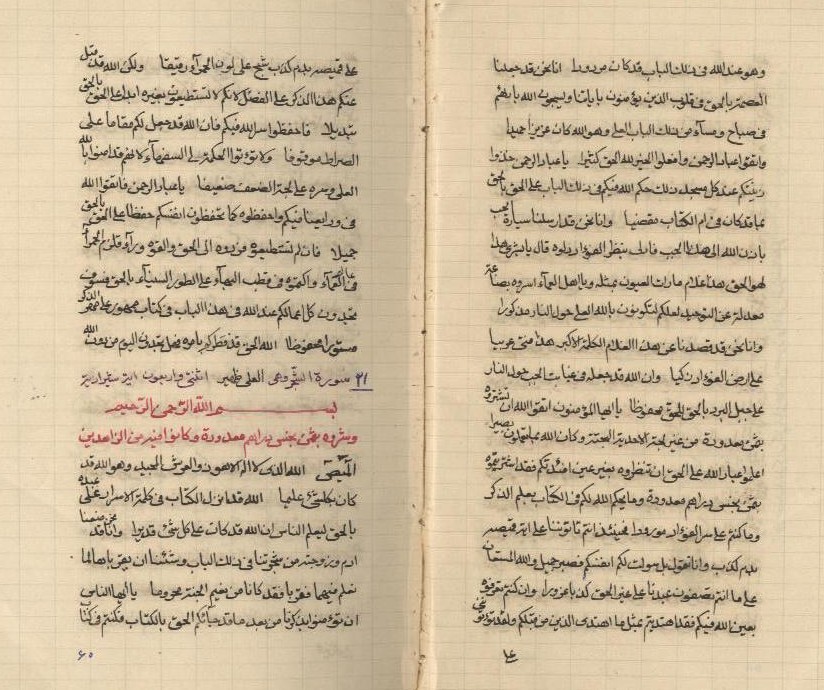 وهو عند الله في ذلك الباب قد كان مورودا انا نحن قد جعلنا
في قلوب الذين يؤمنون باياتنا ويسبحون الله بارئهم
في صباح ومساء من ذلك الباب العلي وهو الله كان عزيزا حميدا
واتقوا عباد الرحمن وافعلوا الخير لله الحق كثيرا يا عباد الرحمن خذوا
زينتكم عند كل مسجد ذلك حكم الله فيكم في ذلك الباب على الحق بالحق
بما قد كان في ام الكتاب مقضيا وانا نحن قد ارسلنا سيارة
باذن الله الى هذا الجب فادلى بنظر الفؤاد دلوه قال يا بشرى هذا
لهو الحق هذا غلام ما رات العيون بمثله ويا اهل العماء اسروه بضاعة
عن التوحيد لعلكم لتكونون بالله العلي حول النار مذكورا
وانا نحن قد قصدنا عن هذا الغلام الكلمة الاكبر هذا فتى عربيا
على ارض الفؤاد زكيا وان الله قد جعله في غيابت الجب حول النار
على جبل البرد بالحق للحق محفوظا يا ايها المؤمنون اتقوا الله ان تشتروه
بثمن معدودة من غير لجة الاحدية البحتة وكان الله بما تعملون بصيرا
اعلموا عباد الله على الحق ان تنظروه بغير عين افئدتكم فقد اشتريتموه
بثمن بخس دراهم معدودة وما يحكم الله لكم في الكتاب بعلم الذكر
وما كنتم على سر الفؤاد مورودا فحينئذ انتم تاتوننا على قميصه
بدم كذب وانا نقول بل سولت لكم انفسكم فصبر جميل والله المستعان
على ما انتم تصفون عبدنا على غير الحق كذبا وزورا وان كنتم
بعين الله فيكم فقد اهتديتم بمثل ما اهتدى الذين من قبلكم ولقد
على قميصه بدم كذب شبح على لون الحمراء رقيقا ولكن الله قد قبل
عنكم هذا الذكر على الفضل لانكم لا تستطيعون بغيره ابدا على الحق بالحق
تبديلا فاحفظوا سر الله فيكم فان الله قد جعل لكم مقاما على
الصراط موقوفا ولا تؤتوا الحكمة الى السفهاء لانفسهم قد امنوا بالله
العلي وسره على لجة الضعف ضعيفا يا عباد الرحمن فاتقوا الله
في ودايعنا فيكم واحفظوه كما تحفظون انفسكم حفظا على الحق بالحق
جميلا فان لم تستطيعوه فردوه الى الحق والقوه وراء قلزم الحمراء
في العماء واكتموه في قطب البهاء على الطور السيناء بالحق فسوف
تجدون كل اعمالكم عند الله في هذا الباب في كتاب
مستورا محفوظا الله الحق قد فطركم بامره فهل تجدون اليوم من دون الله
٢١ سورة العلي ظهير اثنتي واربعون اية شيرازية
بسم الله الرحمن الرحيم
وشروه بثمن بخس دراهم معدودة وكانوا فيه من الزاهدين
الميص الله الذي لا اله الا هو ذو العرش المجيد وهو الله قد
كان بكل شئ عليما الله قد انزل الكتاب في كلمة الاسرار على عبده
بالحق ليعلم الناس ان الله قد كان على كل شئ قديرا وانا قد
ادم وزوجته من شجرتنا في ذلك الباب وشئنا ان يقربا بما
نعلم منهما فقربا فقد كانا من نعيم الجنة محروما يا ايها الناس
ان تؤمنوا بذكرنا من بعد ما قد جائكم الحق بالكتاب فكنتم في كتاب
٦٠